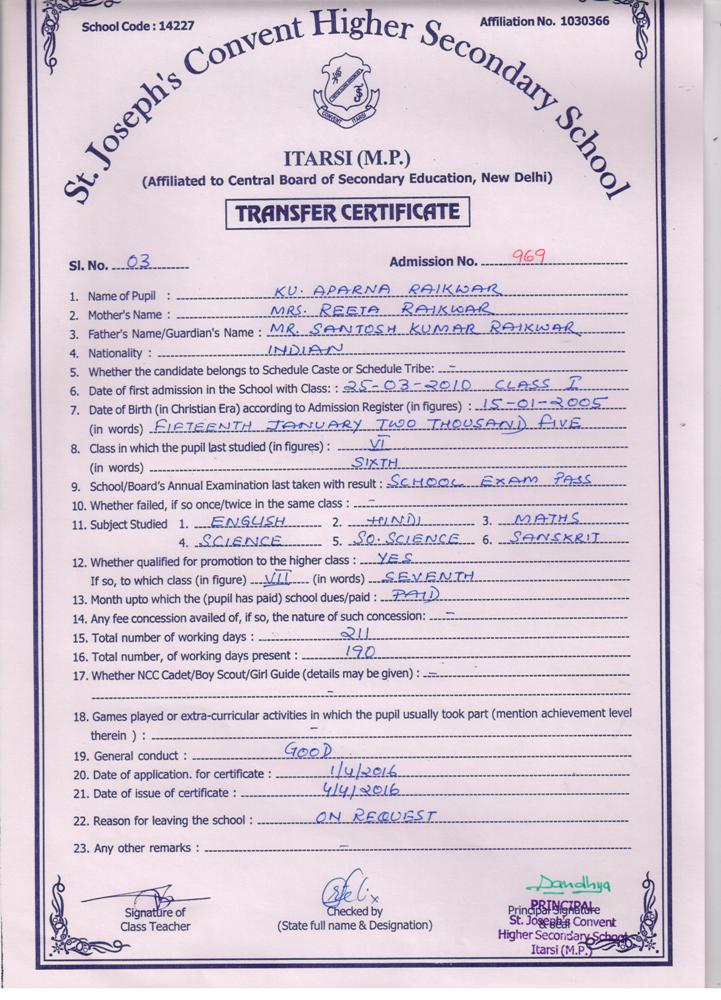 School Code : 14227
Affiliation No. 1030366
St. Joseph's Convent Higher Secondary School
CONVENT ITARSI
ITARSI (M.P.)
(Affiliated to Central Board of Secondary Education, New Delhi)
TRANSFER CERTIFICATE
Sl. No. 03
Admission No. 969
1. Name of Pupil : KU. APARNA RAIKWAR
2. Mother's Name : MRS. REETA RAIKWAR
3. Father's Name/Guardian's Name : MR. SANTOSH KUMAR RAIKWAR
4. Nationality : INDIAN
5. Whether the candidate belongs to Schedule Caste or Schedule Tribe: –
6. Date of first admission in the School with Class: : 25-03-2010 CLASS I
7. Date of Birth (in Christian Era) according to Admission Register (in figures) : 15-01-2005
(in words) FIFTEENTH JANUARY TWO THOUSAND FIVE
8. Class in which the pupil last studied (in figures) : VI
(in words) SIXTH
9. School/Board's Annual Examination last taken with result : SCHOOL EXAM PASS
10. Whether failed, if so once/twice in the same class : –
11. Subject Studied 1. ENGLISH 2. HINDI 3. MATHS
4. SCIENCE 5. SO. SCIENCE 6. SANSKRIT
12. Whether qualified for promotion to the higher class : YES
If so, to which class (in figure) VII (in words) SEVENTH
13. Month upto which the (pupil has paid) school dues/paid : PAID
14. Any fee concession availed of, if so, the nature of such concession: –
15. Total number of working days : 211
16. Total number, of working days present : 190
17. Whether NCC Cadet/Boy Scout/Girl Guide (details may be given) : –
–
18. Games played or extra-curricular activities in which the pupil usually took part (mention achievement level
therein ) : –
19. General conduct : GOOD
20. Date of application. for certificate : 1/4/2016
21. Date of issue of certificate : 4/4/2016
22. Reason for leaving the school : ON REQUEST
23. Any other remarks : –
Signature of
Class Teacher
Checked by
(State full name & Designation)
Sandhya
PRINCIPAL
Principal Signature
& Seal
St. Joseph's Convent
Higher Secondary School
Itarsi (M.P.)